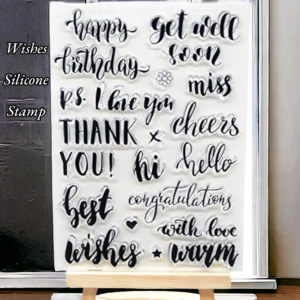 Wishes
Silicone
Stamp
happy
birthday
get well
soon
miss
p.s. I love you
THANK x
YOU!
cheers
hi
hello
best
congratulations
with love
wishes
warm